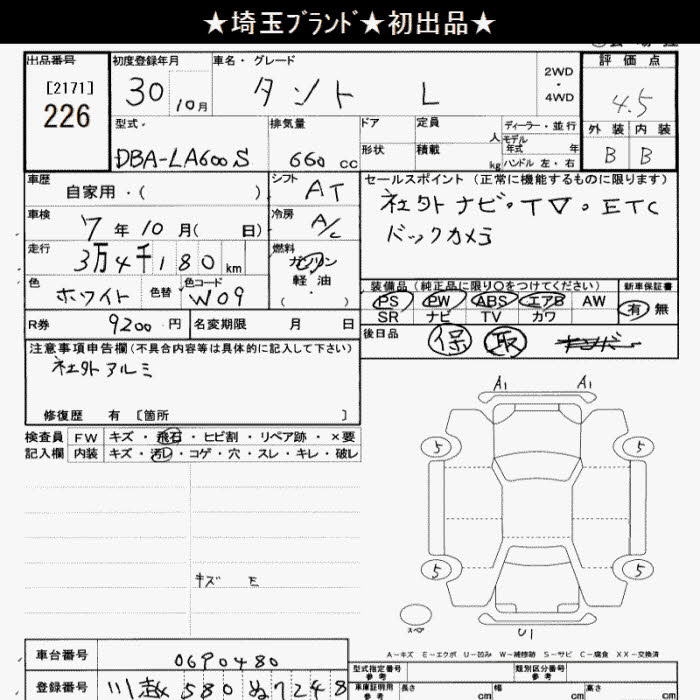 ★埼玉ﾌﾞﾗﾝﾄﾞ★初出品★
出品番号 初度登録年月 車名・グレード 評価点
[2171] 30 10月 タント L 2WD・4WD 4.5
226
型式 排気量 ドア 定員 人 ディーラー・並行 外装 内装
DBA-LA600S 660 cc 形状 積載 kg モデル年式 年 ハンドル 左・右 B B
車歴 自家用・( ) シフト AT セールスポイント(正常に機能するものに限ります)
車検 7年10月( 日) 冷房 A/C 社外ナビ・TV・ETC
走行 3万4千180km 燃料 ガソリン 軽油 バックカメラ
色 ホワイト 色替 色コード W09 装備品(純正品に限り○をつけてください) 新車保証書
PS PW ABS エアB AW 有 無
SR ナビ TV カワ
R券 9200円 名変期限 月 日 後日品 保 取
注意事項申告欄(不具合内容等は具体的に記入して下さい)
社外アルミ
修復歴 有 [箇所 ]
検査員 FW キズ・飛石・ヒビ割・リペア跡・×要
記入欄 内装 キズ・汚レ・コゲ・穴・スレ・キレ・破レ
A1 A1
5 5
キズ E
5 5
スペア U1
A-キズ E-エクボ U-凹み W-補修跡 S-サビ C-腐食 XX-交換済
車台番号 0690480 型式指定番号 参考 類別区分番号 参考
登録番号 川越 580 ぬ 7248 車庫証明用 参考 長さ cm 幅 cm 高さ cm